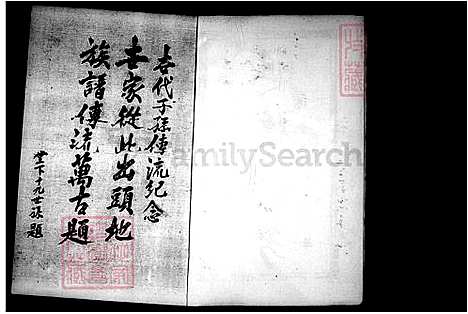 吉代子孫傳流紀念
吉家從此出頭地
族譜傳流萬古題
堂下十九世孫題
FamilySearch